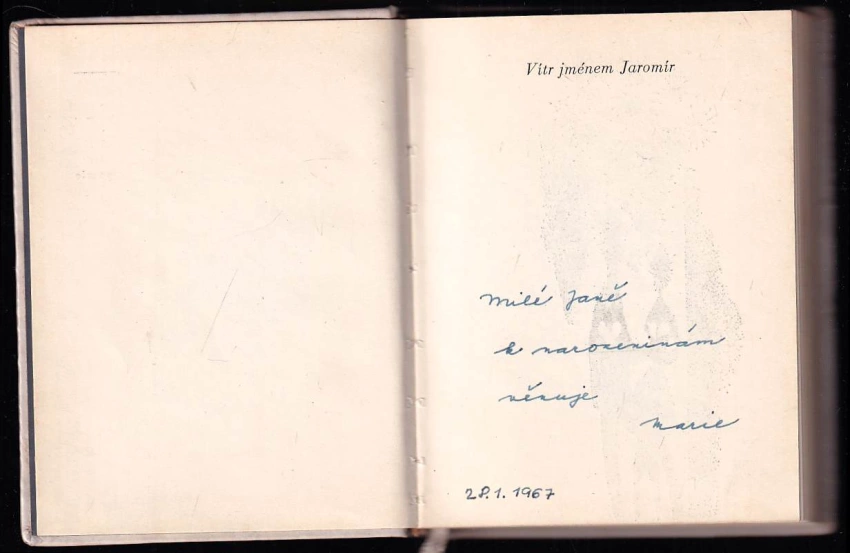 Vítr jménem Jaromír
Milé Janě
k narozeninám
věnuje
Marie
28.1.1967